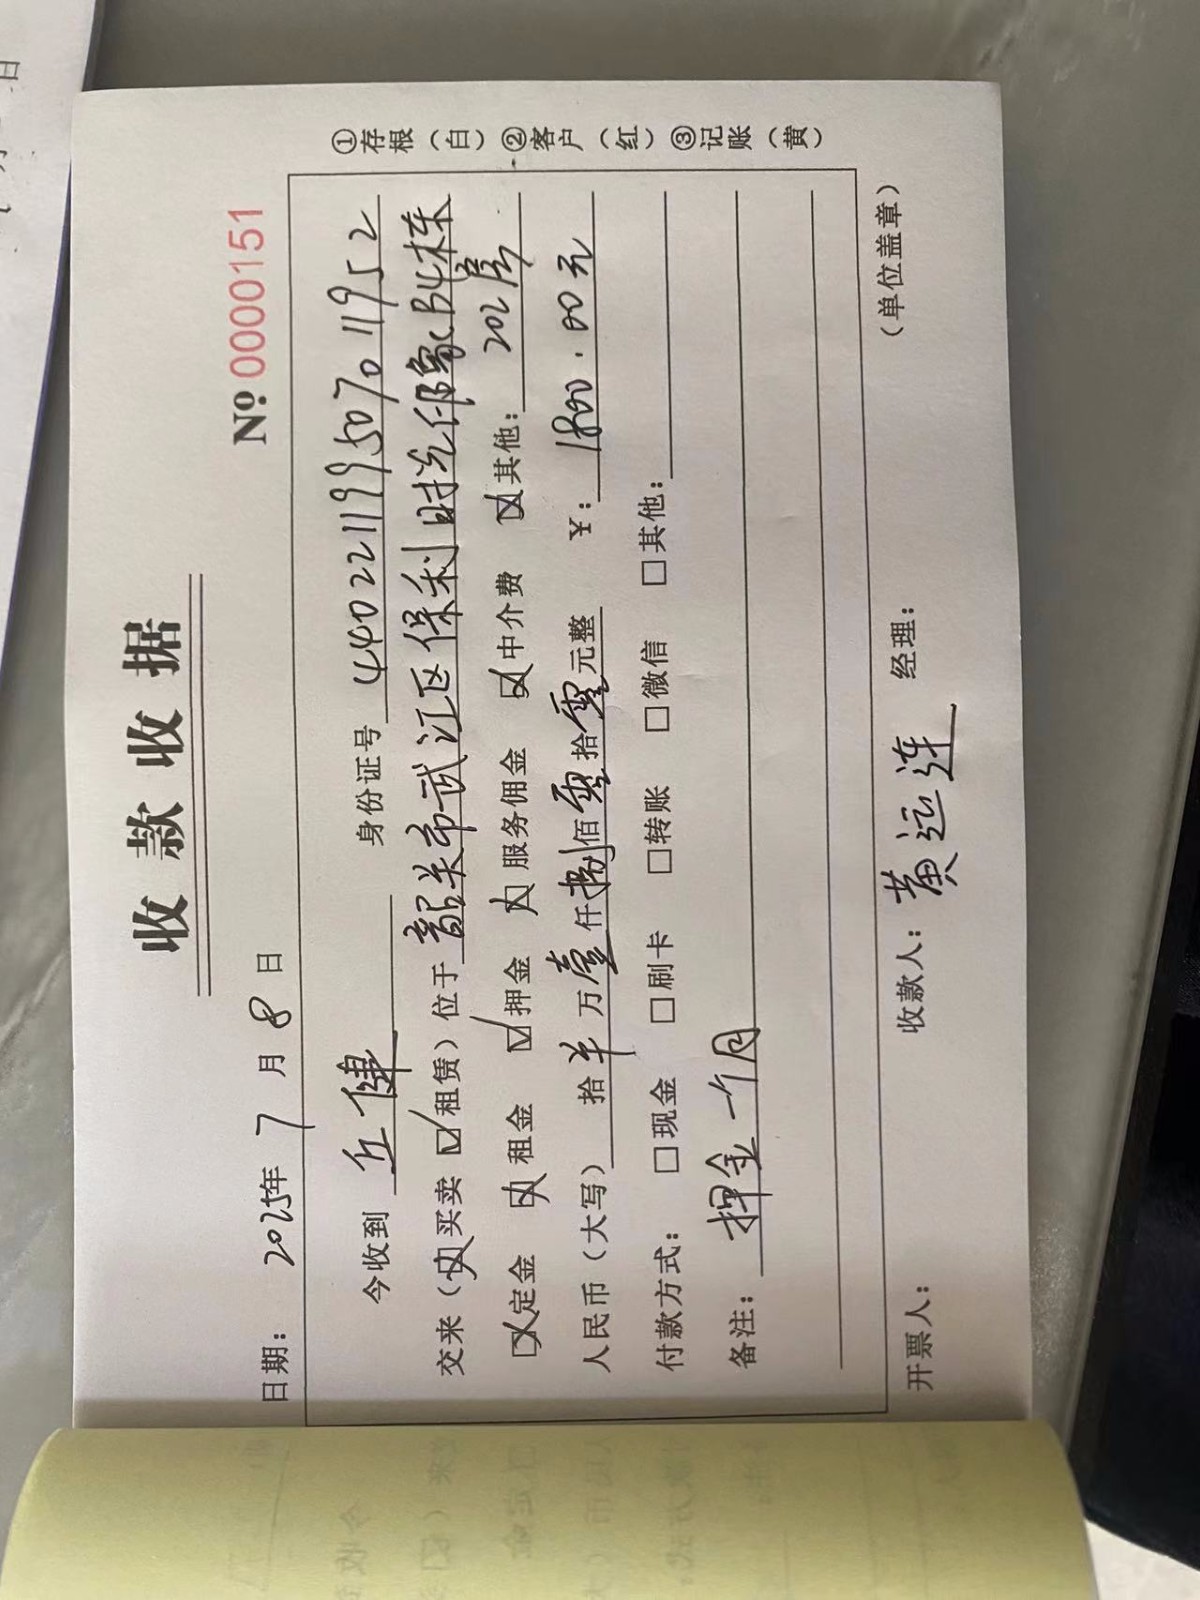 收款收据
日期: 2025年 7 月 8 日 № 0000151
今收到 丘健 身份证号 440221199507011952
交来 (☒买卖 ☑租赁) 位于 韶关市武江区保利时光印象B4栋
☒定金 ☒租金 ☑押金 ☒服务佣金 ☒中介费 ☒其他: 202房
人民币 (大写) 拾 万壹仟捌佰零拾零元整 ¥: 1800.00元
付款方式: □现金 □刷卡 □转账 □微信 □其他:
备注: 押金一个月
开票人: 收款人: 黄运连 经理: (单位盖章)
①存根 (白) ②客户 (红) ③记账 (黄)